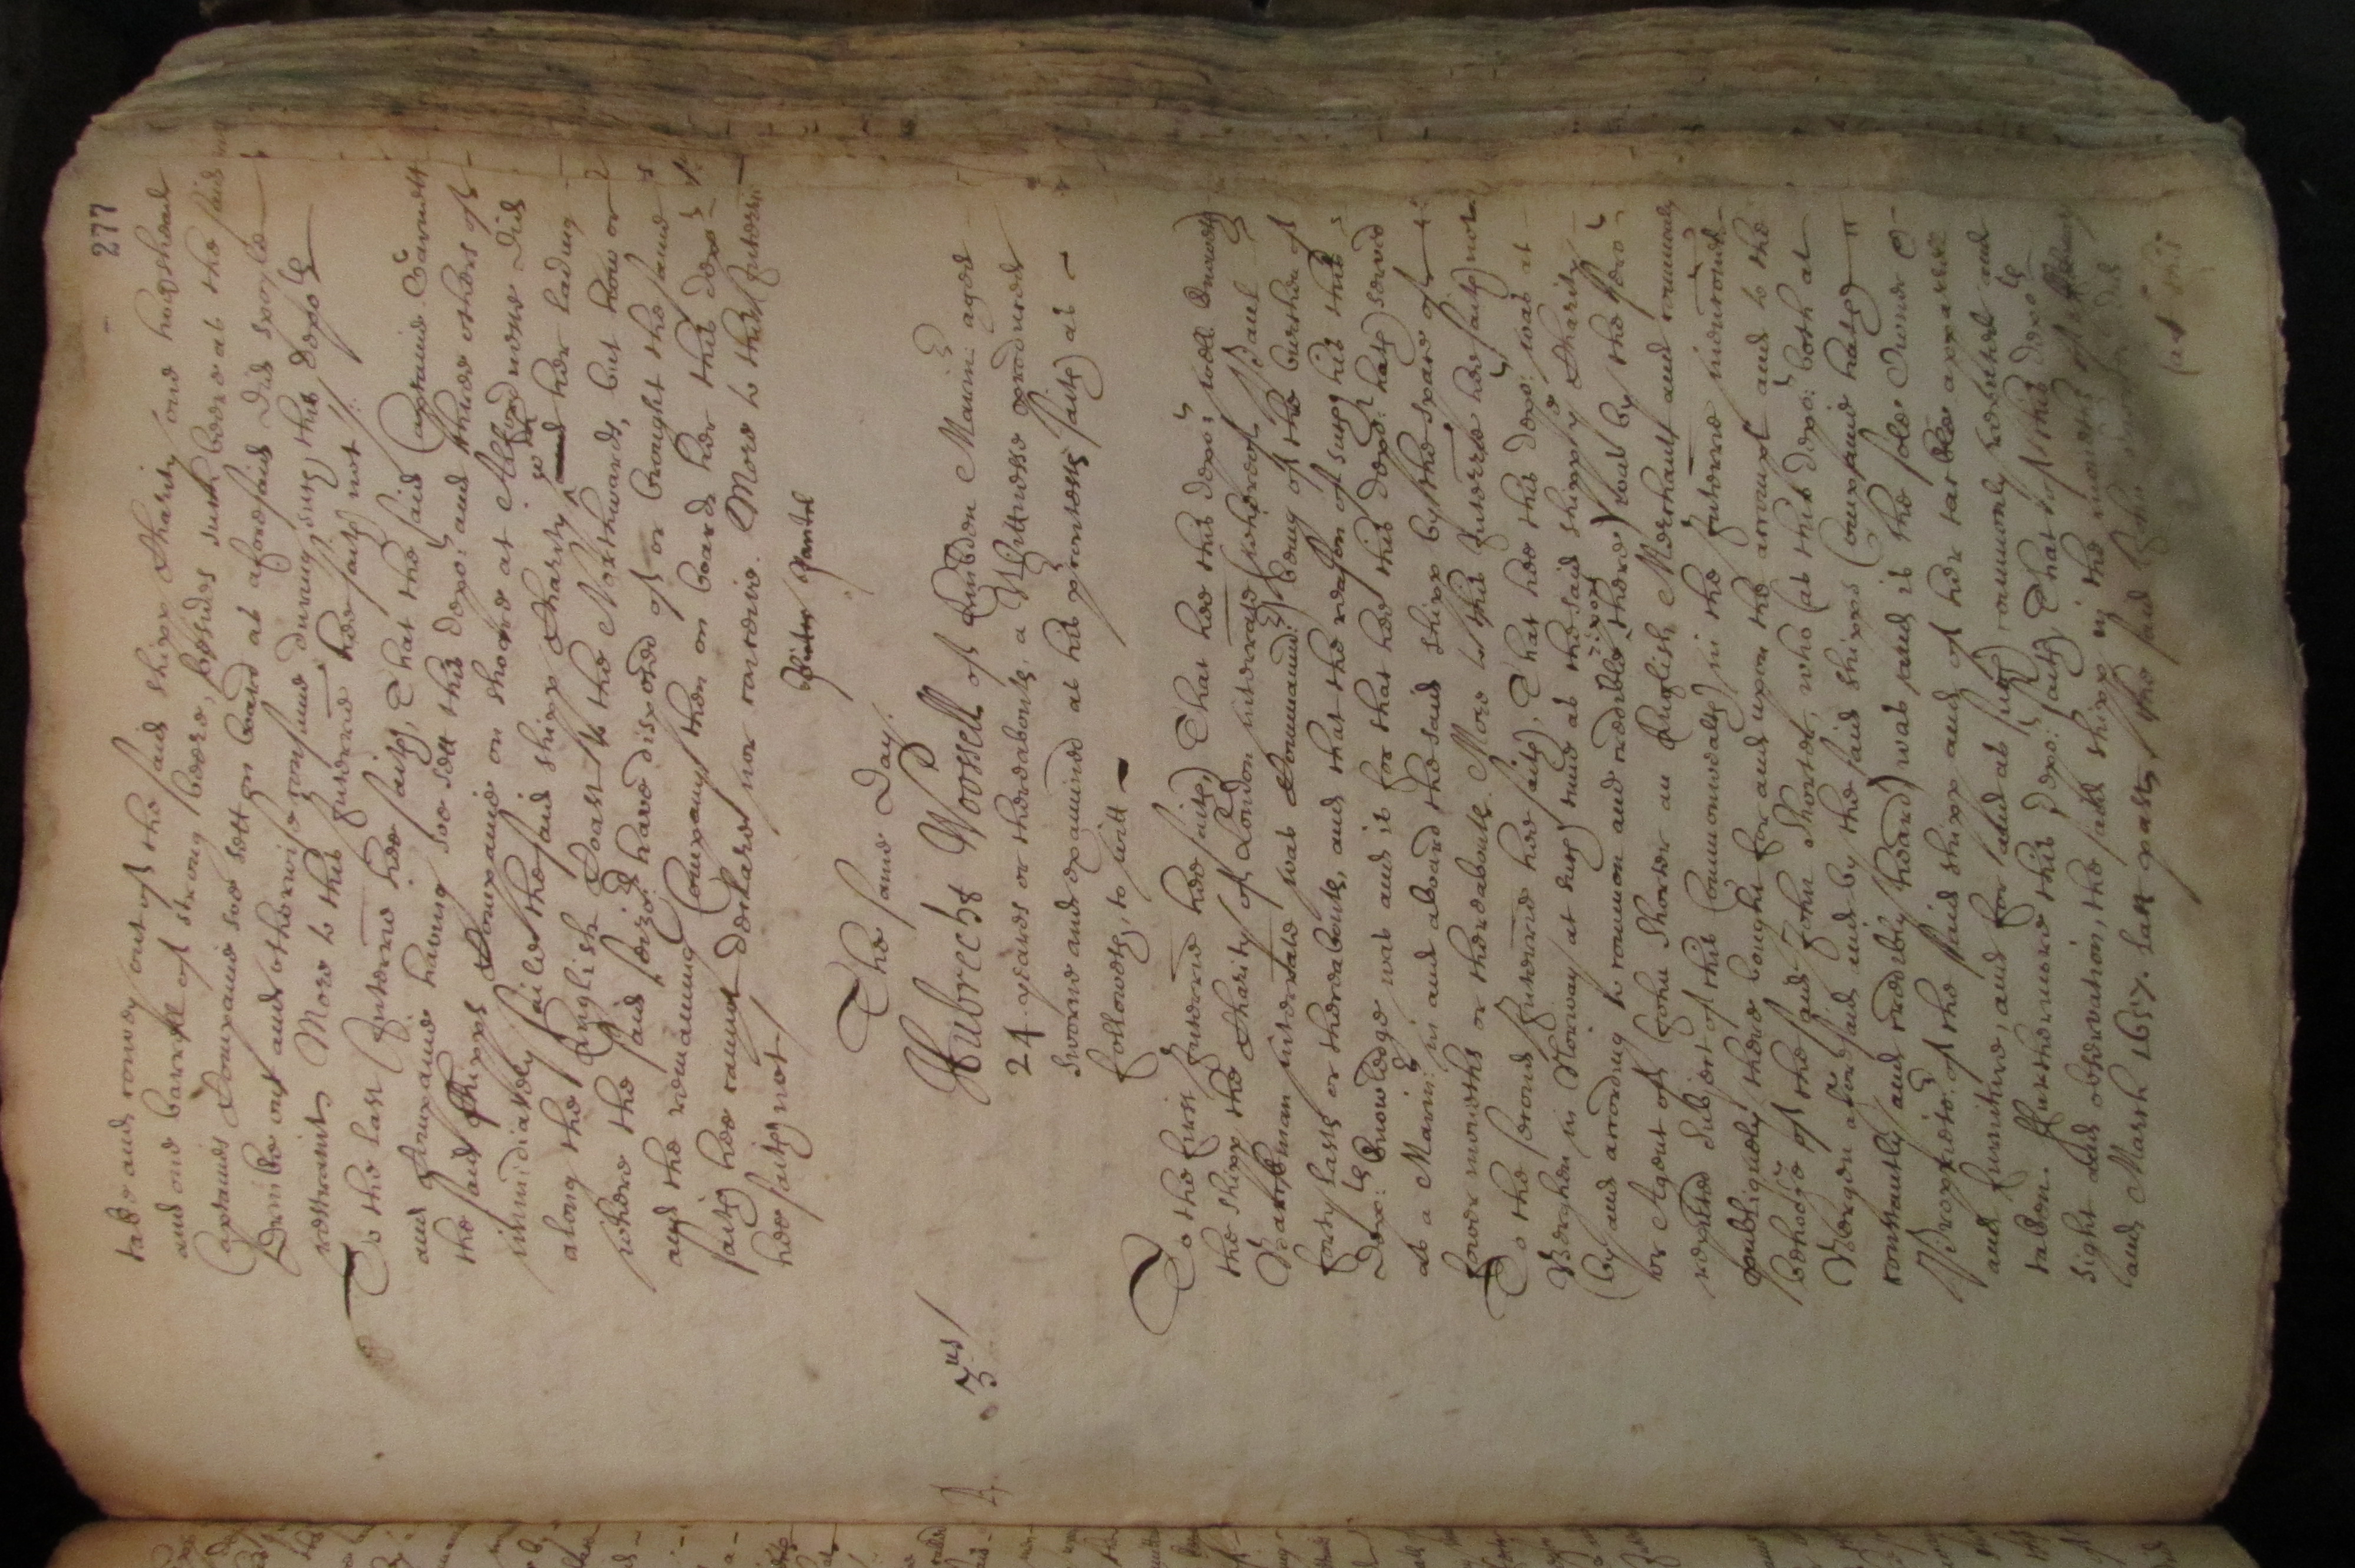 277
take and convey out of the said shipp Charity one hogshead
and one barrell of strong beere, besides such beere as the said
Captaines Companie soe sett on board as aforesaid did spoyle
drinke out and otherwise consume during this depo:ts
restraint. More to this Interrie hee saith not./
To the last Interrie hee saith, That the said Captaine
and Companie having soe sett this depo:t and three others of
the said shipps Companie on shoare at did
immediately saile the said shipp Charity and her lading
along the English Coast to the Northwards, but how or
where the said have disposed of or brought the same
and the remaining Company then on board her this depo:t
saith hee cannot declare nor conceive. More to this Interrie
hee saith not./
The same day.
A. 3us/
Hubrecht Woossell of Embden Marin:r aged
24 yeares or thereabouts, a Wittnesse produced
sworne and examined as hee pretendeth saith as
followeth, to witt
To the first Interrie hee saith, That hee this depo:t well knoweth
the shipp the Charity of London interrate whereof Paul
interrate was Commander being of the burthen of
forty lasts or thereabouts, and that the reason of such his this
depo:ts knowledge was and is for that hee this depo:t hath served
as a Marin:r in and aboard the said shipp by the space of
fower moneths or thereabouts. More to this Interrie hee saith not.
To the second Interrie hee saith, That hee this depo:t was at
Berghen in Norway at such time as the said shipp Charity
(by and according to common and credible report there) was by the
or Agent of John Shorter an English Merchant and commonly
reputed Subject of this Commonwealth in the Interrie mentioned
publiquely there bought for and upon the account and to the
behoofe of the said John Shorter, who (as this depo:t both at
Bergen aforesaid and by the said shipps Companie hath
constantly and credibly heard) was and is the sole Owner &
Propriето:r of the said shipp and of her tackle apparell
and furniture, and for and as such commonly reputed and
taken. Furthermore this depo:t saith, That of this depo:ts
sight and observation, the said shipp in the moneths of
and March 1657. last past, the said John Shorter did
(as